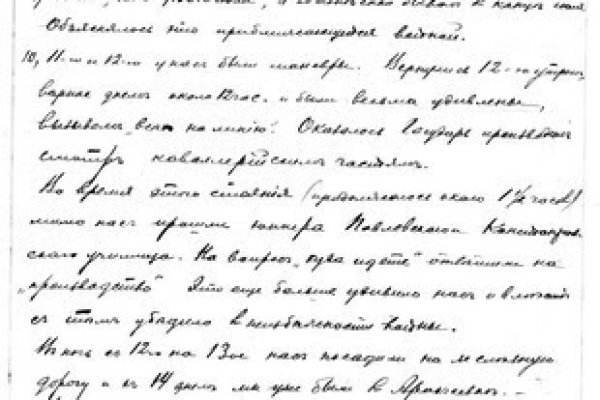 Объяснялось это приближающейся войной.
10, 11-го и 12-го у нас были маневры. Вернулись 12-го утром,
вернее днем около 12 час. и были весьма удивлены,
вызовом "всех на линию". Оказалось Государь производит
смотр кавалерийским частям.
Во время этого стояния (продолжалось около 1½ часов)
мимо нас прошли юнкера Павловского
училища. На вопрос "куда идете" ответили на
"производство" Это еще больше удивило нас и
с этим убедило в неизбежности войны.
В ночь с 12-го на 13-ое нас посадили на железную
дорогу и 14 днем мы уже были в